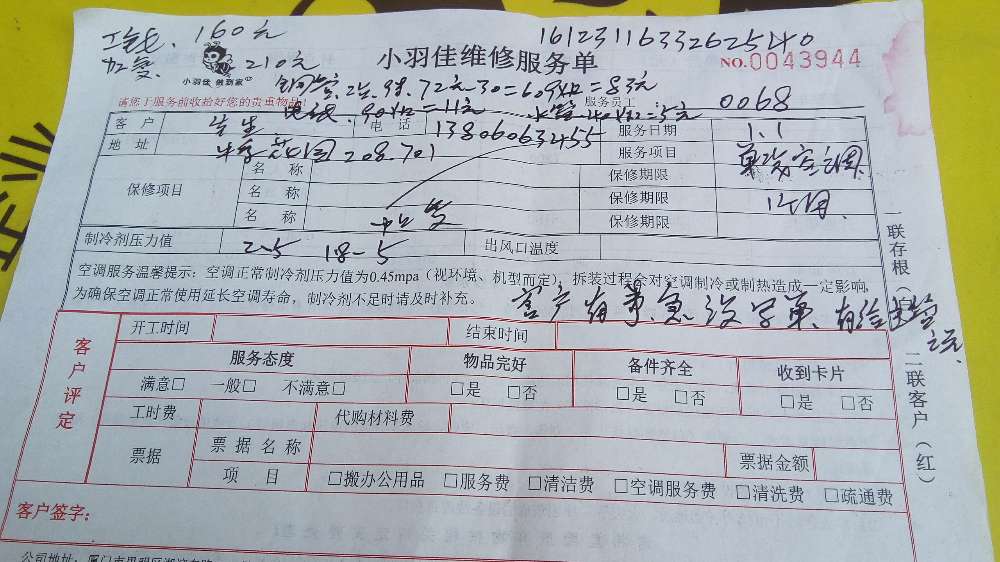 工钱、160元
1612311633262540
加氟 210元
小羽佳 做到家
小羽佳维修服务单
NO.0043944
铜管、2米
72元-30=60
=83元
请您于服务前收拾好您的贵重物品!
电线、
=11元
=5元
服务员工 0068
客户 先生 电话 13806063455 服务日期 1.1
地址 208.701 服务项目 单装空调
保修项目 名称 保修期限
名称 保修期限 1个月
名称 保修期限
制冷剂压力值 2-5 18-5 出风口温度
空调服务温馨提示:空调正常制冷剂压力值为0.45mpa(视环境、机型而定),拆装过程会对空调制冷或制热造成一定影响,
为确保空调正常使用延长空调寿命,制冷剂不足时请及时补充。
客户有事急没写单、有给
客户评定
开工时间 结束时间
服务态度 物品完好 备件齐全 收到卡片
满意□ 一般□ 不满意□ □是 □否 □是 □否 □是 □否
工时费 代购材料费
票据 票据名称 票据金额
项目 □搬办公用品 □服务费 □清洁费 □空调服务费 □清洗费 □疏通费
客户签字:
公司地址:厦门市思明区湖滨
一联存根(白)
二联客户(红)